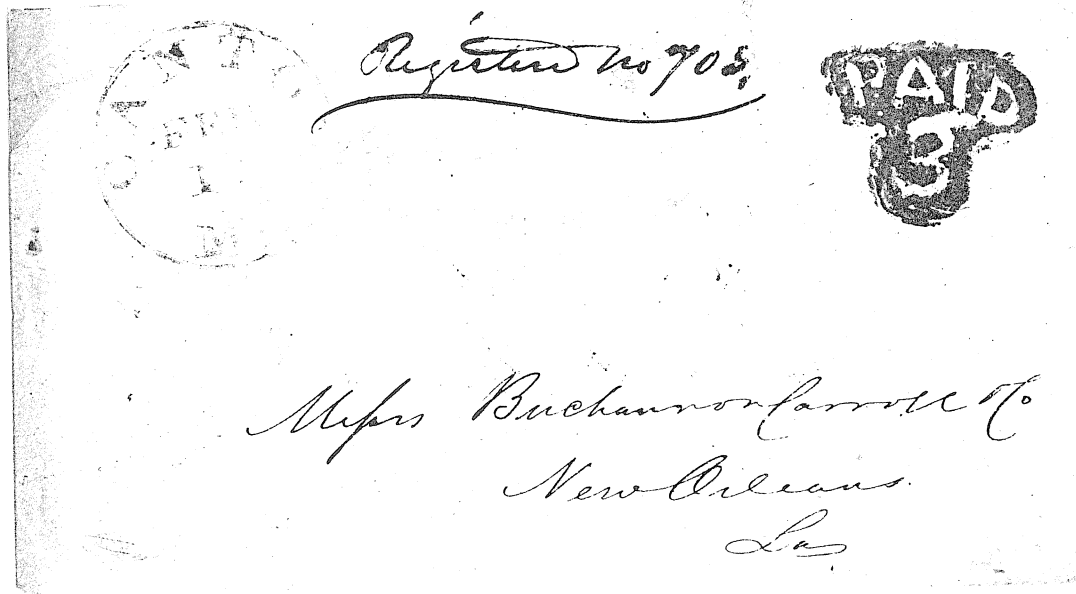 CANTO
FEB
1
Registered No 703.
PAID
3
Messrs Buchannon Carroll & Co
New Orleans
La